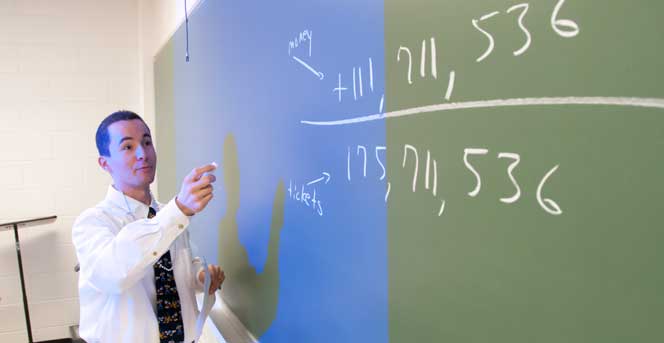 money
+111,711,536
tickets
175,711,536